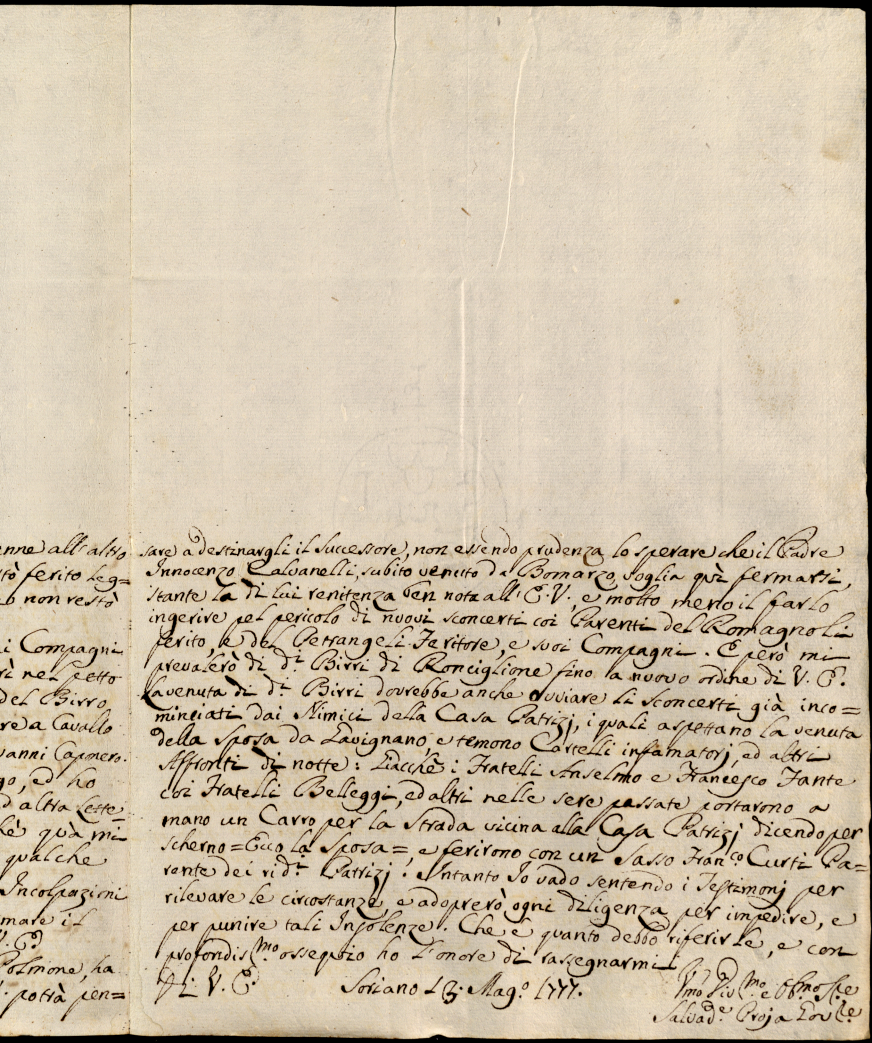 enne all'altro
tò ferito leg=
b non restò
i Compagni
rì nel petto
del Birro
re a Cavallo
vanni Capnero
go, ed ho
d altra Lette=
hè quà mi
qualche
Incolpazioni
mare il
V. E.
Polmone, ha
potrà pen=
sare a destinargli il Successore, non essendo prudenza lo sperare che il Padre
Innocenzo Calvanelli, subito venuto da Bomarzo, voglia quì fermarsi,
stante la di lui renitenza ben nota all' E. V., e molto meno il farlo
ingerire pel pericolo di nuovi sconcerti coi Parenti del Romagnoli
ferito, e del Petrangeli Feritore, e suoi Compagni. E però mi
prevalerò di di Birri di Ronciglione fino a nuovo ordine di V. E.
La venuta di di Birri dovrebbe anche ovviare li sconcerti già inco=
minciati dai Nimici della Casa Patrizj, i quali aspettano la venuta
della Sposa da Lavignano, e temono Cartelli infamatorj, ed altri
Affronti di notte: Giacchè i Fratelli Anselmo e Francesco Fante
coi Fratelli Belleggi, ed altri nelle sere passate portarono a
mano un Carro per la Strada vicina alla Casa Patrizj dicendo per
scherno = Ecco la Sposa =, e ferirono con un Sasso Fran.co Curti Pa=
rente dei ridi Patrizj. Intanto Io vado sentendo i Testimonj per
rilevare le circostanze, e adoprerò ogni diligenza per impedire, e
per punire tali Insolenze. Che è quanto debbo riferirle, e con
profondis.mo ossequio ho l'onore di rassegnarmi
Di V. E. Soriano 23 Mag.o 1777.
Umo Div.mo e Obmo S.e
Salvad.e Proja Gov.re